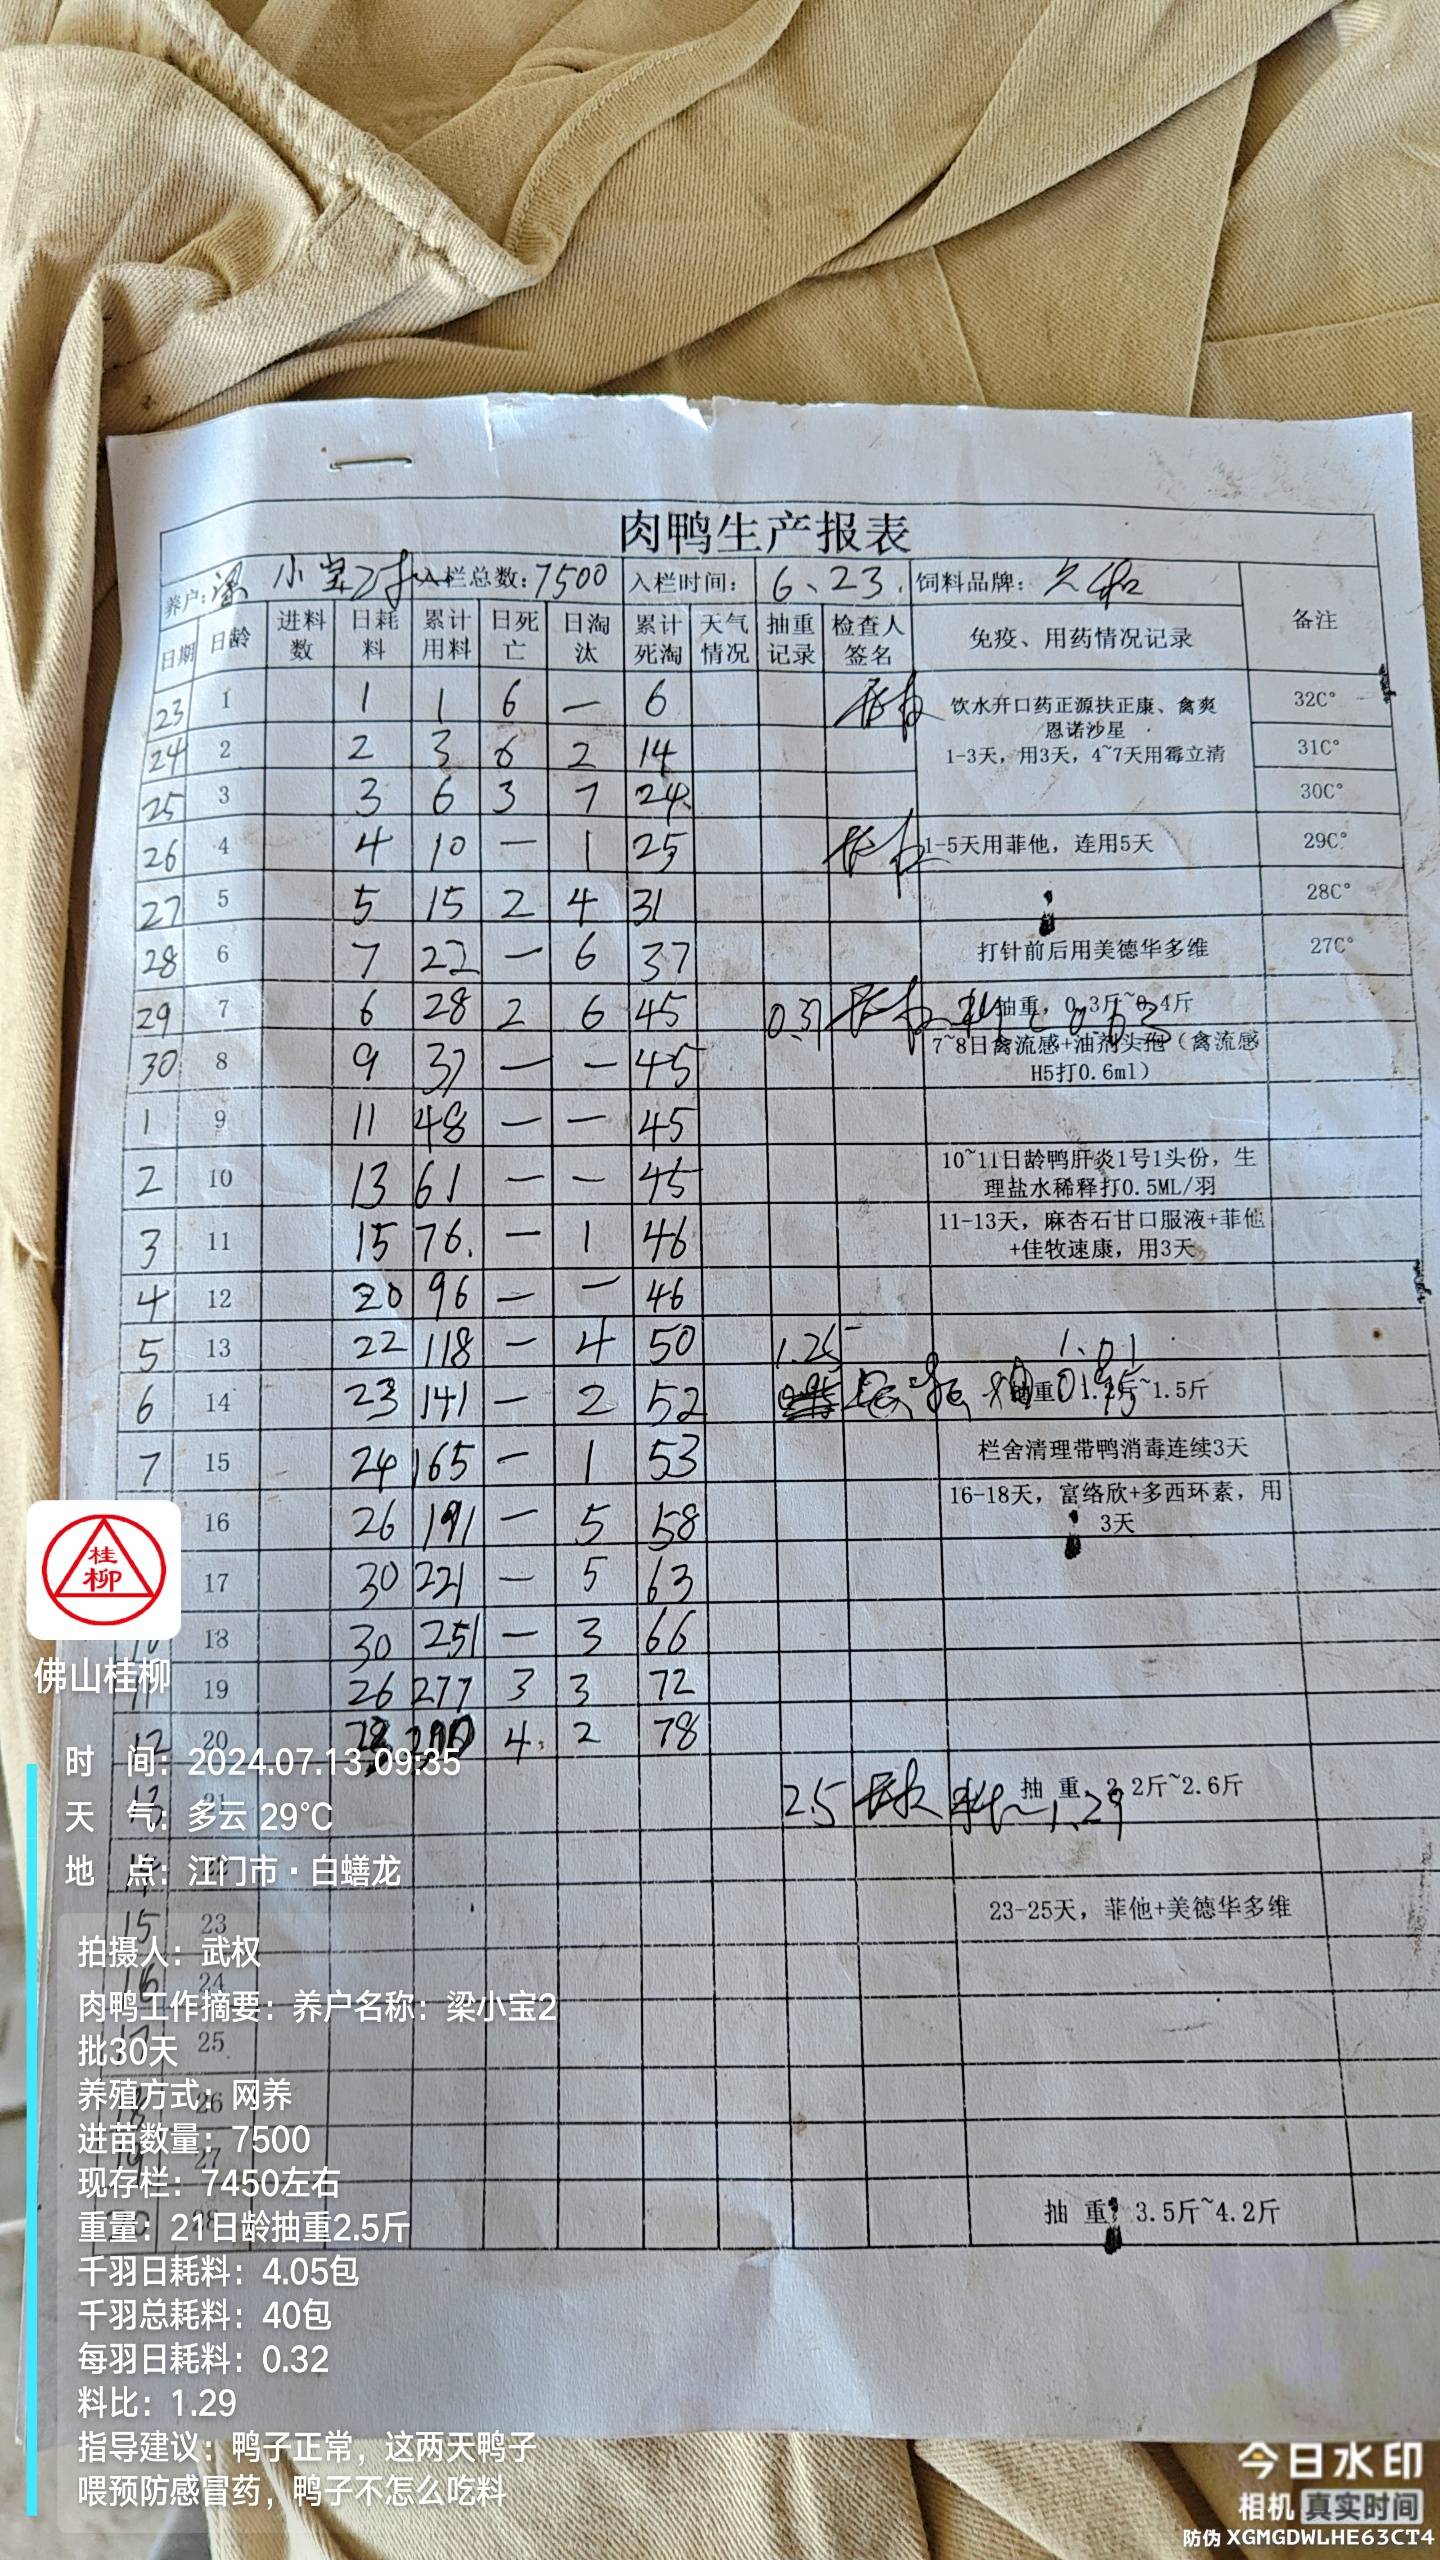 肉鸭生产报表
养户: 梁小宝2批 入栏总数: 7500 入栏时间: 6、23. 饲料品牌: 备注
日期 日龄 进料数 日耗料 累计用料 日死亡 日淘汰 累计死淘 天气情况 抽重记录 检查人签名 免疫、用药情况记录
23 1 1 1 6 — 6 饮水开口药正源扶正康、禽爽 32C°
恩诺沙星
24 2 2 3 6 2 14 1-3天，用3天，4~7天用霉立清 31C°
25 3 3 6 3 7 24 30C°
26 4 4 10 — 1 25 1-5天用菲他，连用5天 29C°
27 5 5 15 2 4 31 28C°
28 6 7 22 — 6 37 打针前后用美德华多维 27C°
29 7 6 28 2 6 45 0.37 抽重，0.3斤~0.4斤 料比0.63
30 8 9 37 — — 45 7~8日禽流感+油剂头孢（禽流感
H5打0.6ml）
1 9 11 48 — — 45
2 10 13 61 — — 45 10~11日龄鸭肝炎1号1头份，生
理盐水稀释打0.5ML/羽
3 11 15 76. — 1 46 11-13天，麻杏石甘口服液+菲他
+佳牧速康，用3天
4 12 20 96 — — 46
5 13 22 118 — 4 50 1.25 1.01
6 14 23 141 — 2 52 抽重 1.2斤~1.5斤 0.95
7 15 24 165 — 1 53 栏舍清理带鸭消毒连续3天
16 26 191 — 5 58 16-18天，富络欣+多西环素，用
3天
17 30 221 — 5 63
18 30 251 — 3 66
19 26 277 3 3 72
12 20 4 2 78
13 21 2.5 抽 重，2.2斤~2.6斤 料~1.29
14 22
15 23 23-25天，菲他+美德华多维
16 24
17 25
18 26
19 27
20 28 抽 重，3.5斤~4.2斤
桂柳
佛山桂柳
时 间：2024.07.13 09:35
天 气：多云 29°C
地 点：江门市·白蟮龙
拍摄人：武权
肉鸭工作摘要：养户名称：梁小宝2
批30天
养殖方式：网养
进苗数量：7500
现存栏：7450左右
重量：21日龄抽重2.5斤
千羽日耗料：4.05包
千羽总耗料：40包
每羽日耗料：0.32
料比：1.29
指导建议：鸭子正常，这两天鸭子
喂预防感冒药，鸭子不怎么吃料
今日水印
相机 真实时间
防伪 XGMGDWLHE63CT4